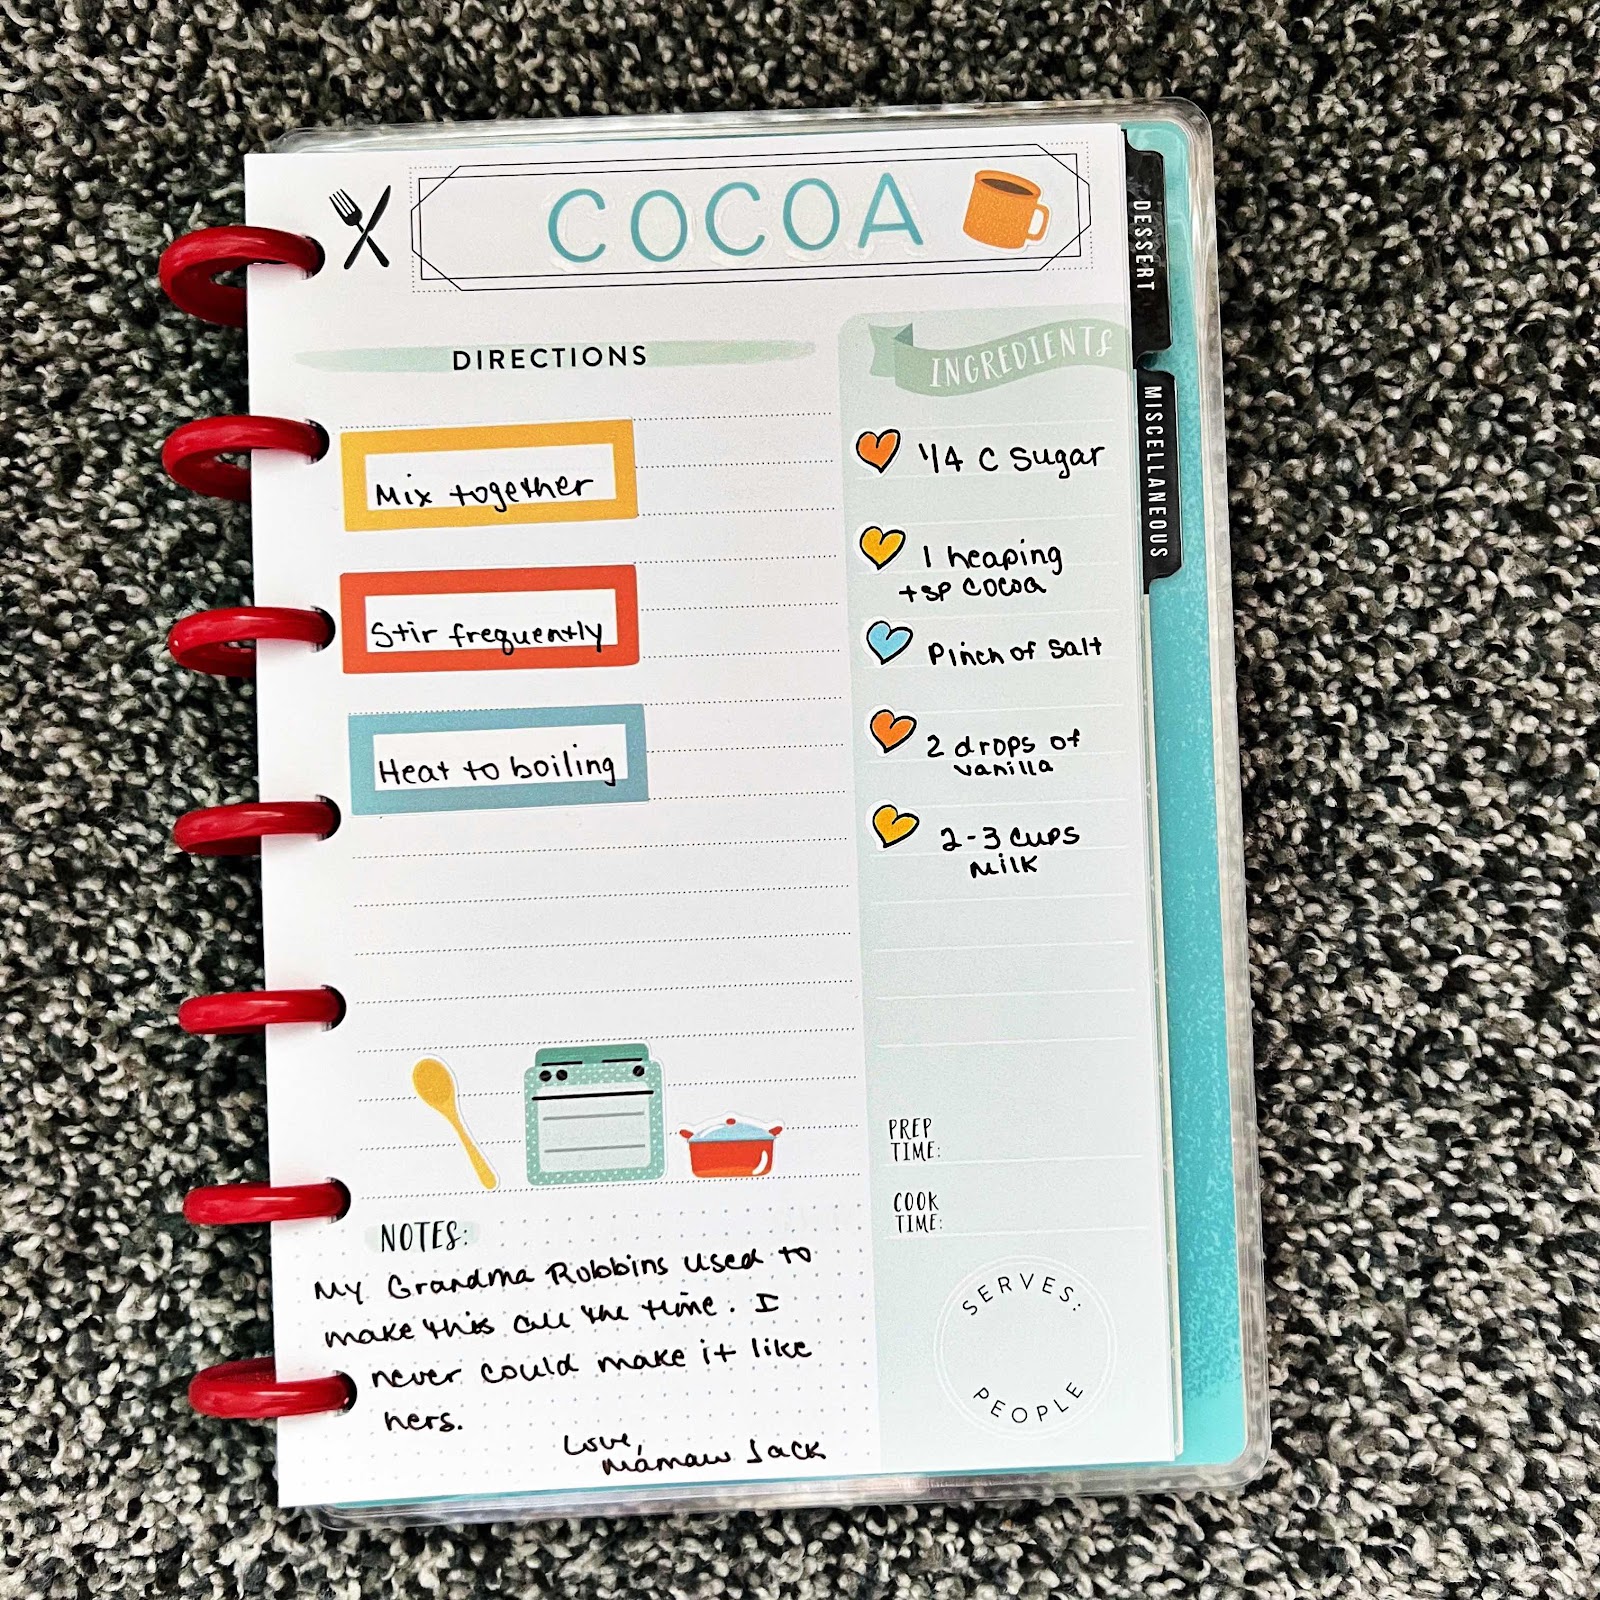 COCOA
DIRECTIONS
Mix together
Stir frequently
Heat to boiling
INGREDIENTS
1/4 C Sugar
1 heaping
tsp cocoa
Pinch of Salt
2 drops of
vanilla
2-3 cups
milk
PREP
TIME:
COOK
TIME:
SERVES:
PEOPLE
NOTES:
My Grandma Robbins used to
make this all the time. I
never could make it like
hers.
Love,
Mamaw Jack
DESSERT
MISCELLANEOUS